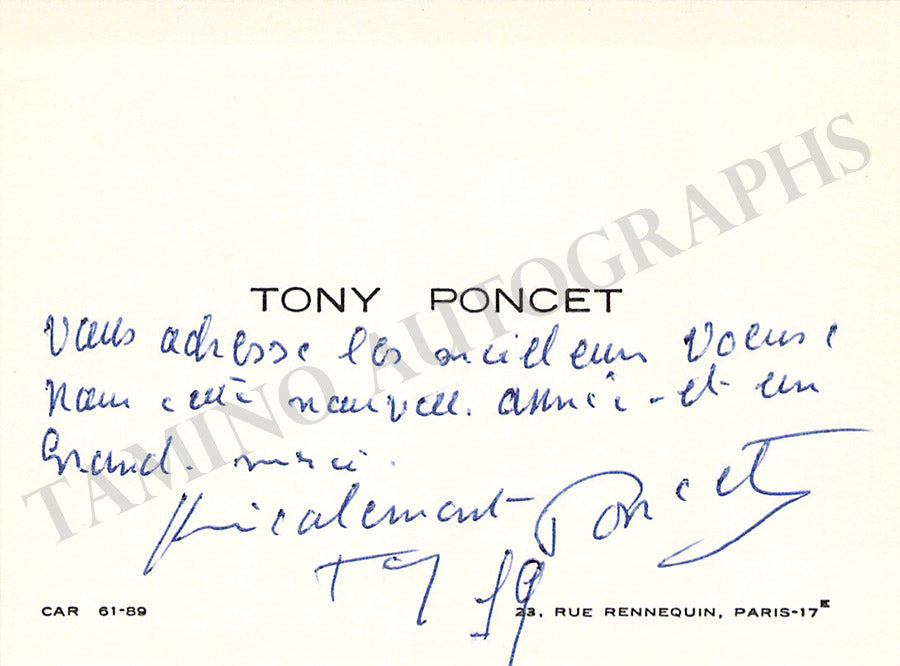 TONY PONCET
Vous adresse les meilleurs voeux
pour cette nouvelle année - et un
Grand merci.
Amicalement Poncet
Tony 59
CAR 61-89 23, RUE RENNEQUIN, PARIS-17E
TAMINO AUTOGRAPHS